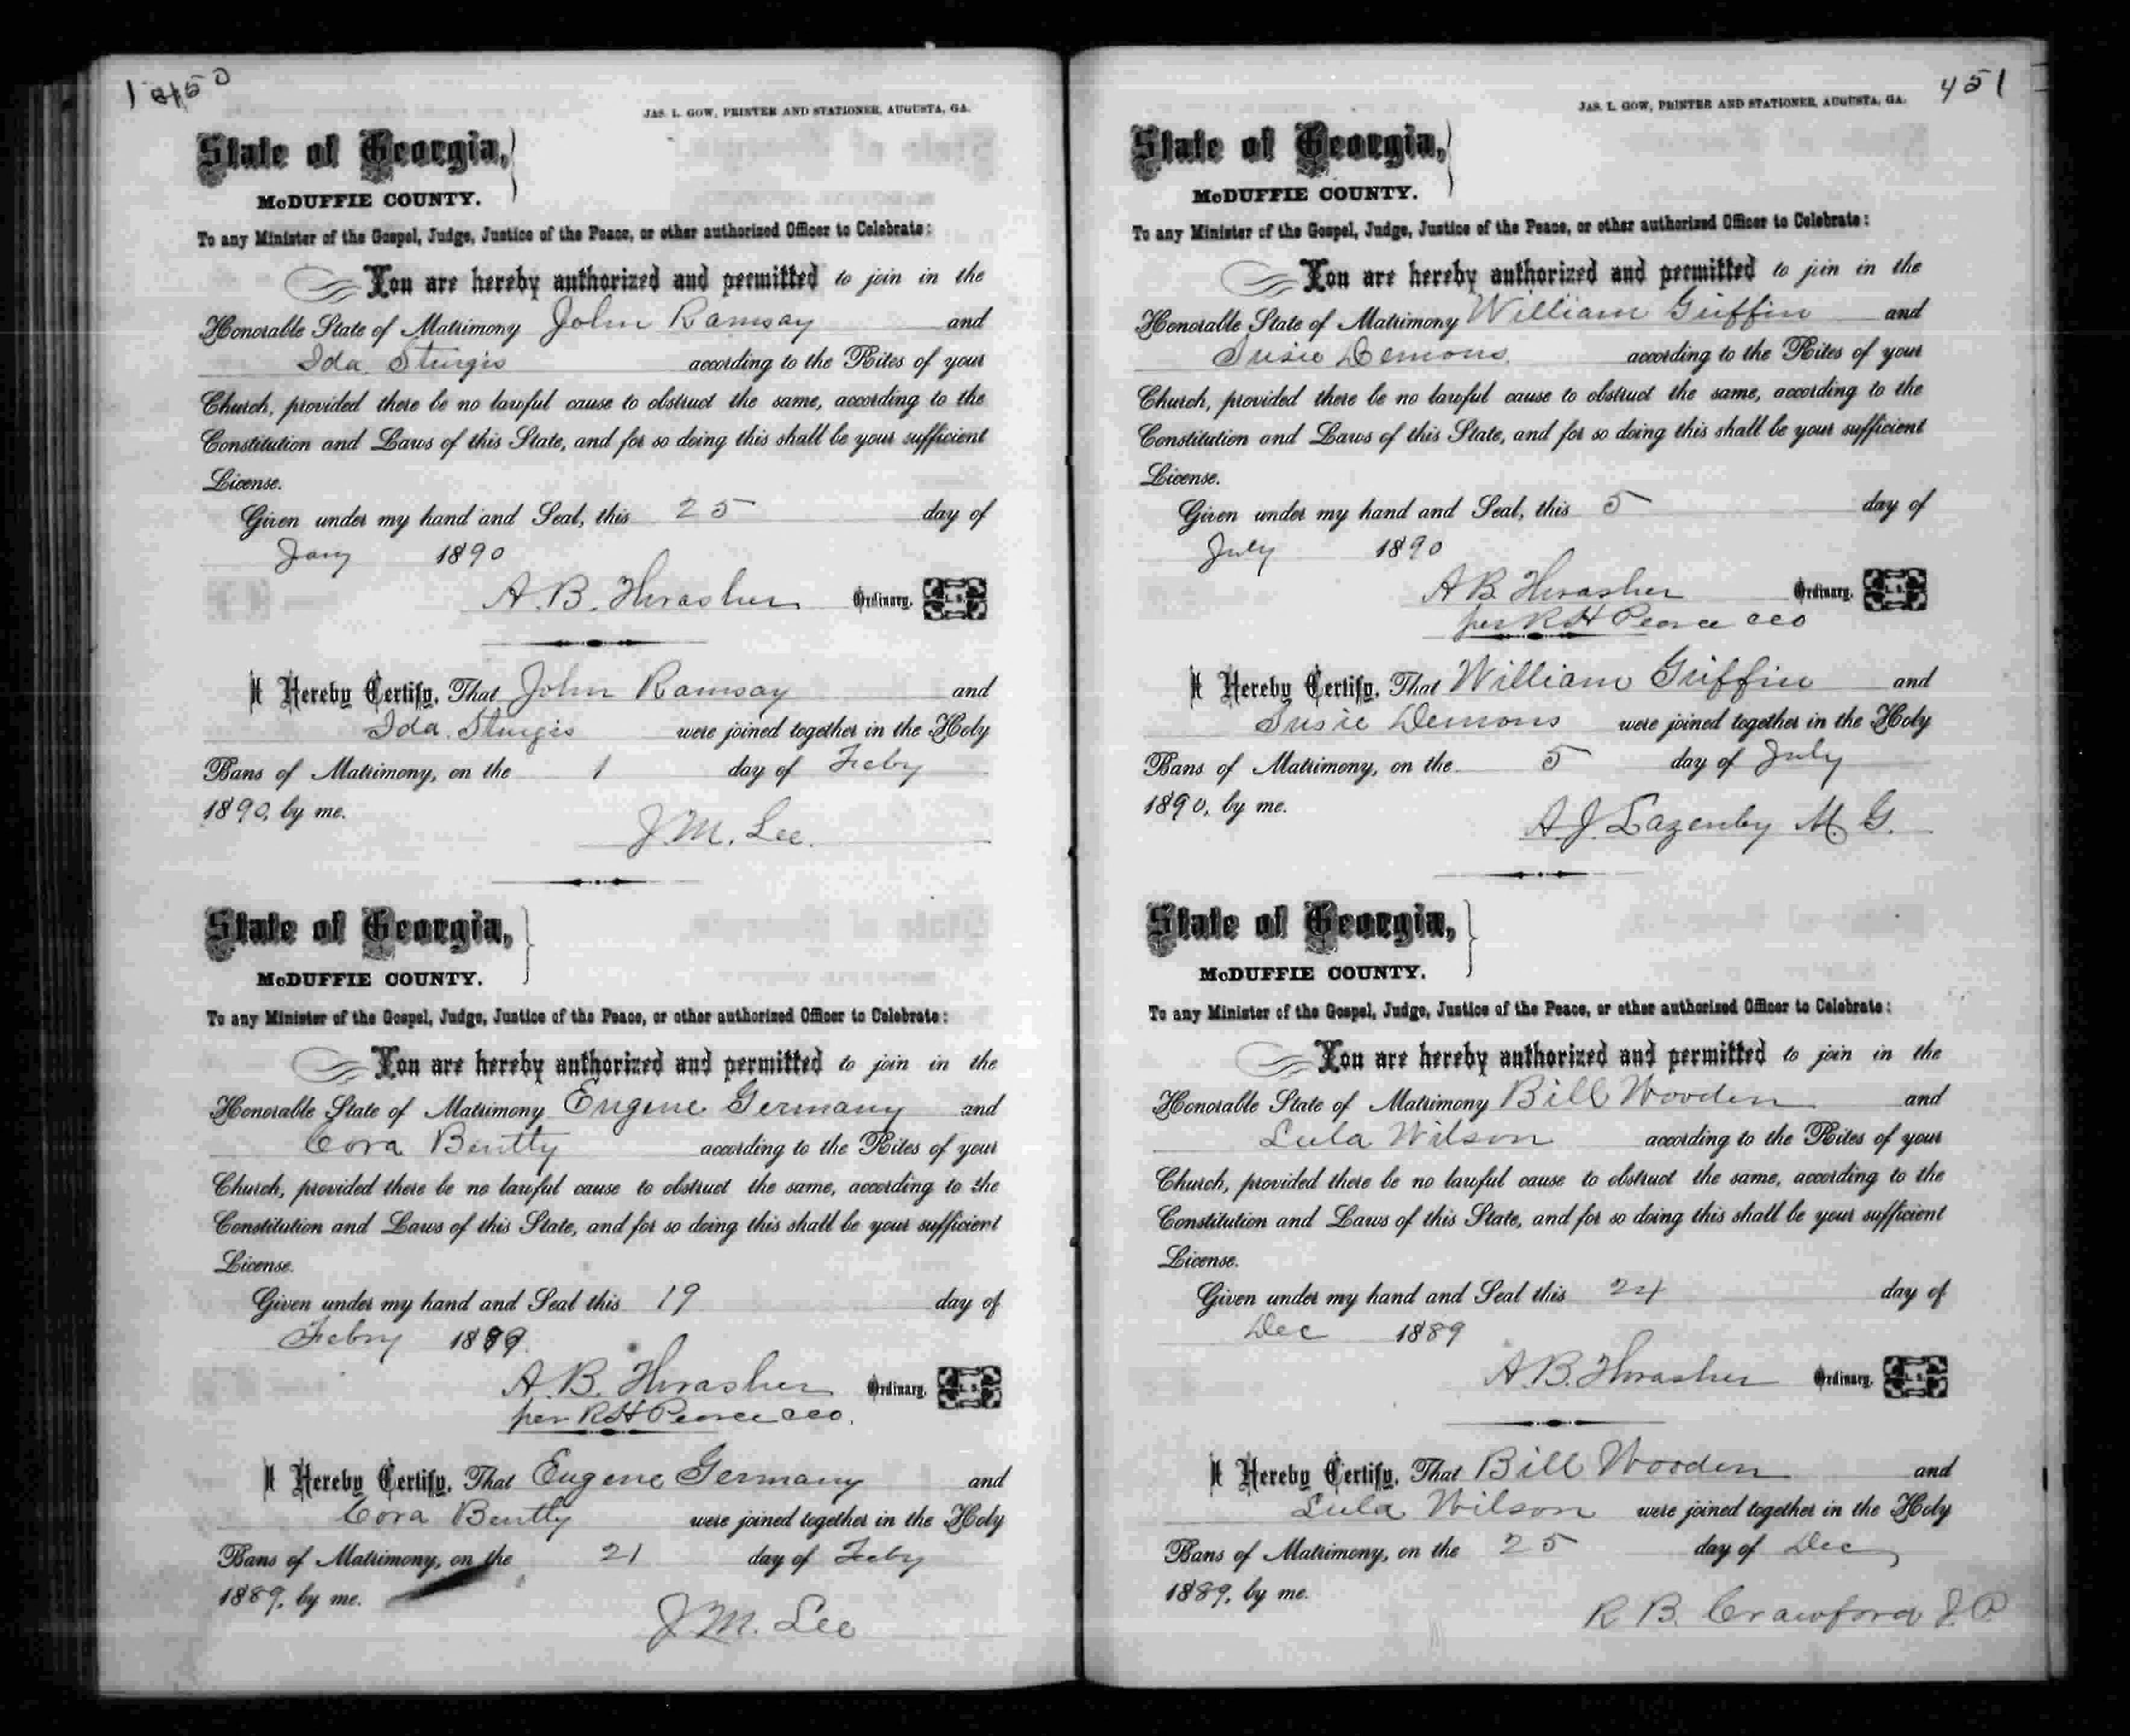 450
JAS. L. GOW, PRINTER AND STATIONER, AUGUSTA, GA.
State of Georgia,
McDUFFIE COUNTY.
To any Minister of the Gospel, Judge, Justice of the Peace, or other authorized Officer to Celebrate:
You are hereby authorized and permitted to join in the
Honorable State of Matrimony John Ramsay and
Ida Sturgis according to the Rites of your
Church, provided there be no lawful cause to obstruct the same, according to the
Constitution and Laws of this State, and for so doing this shall be your sufficient
License.
Given under my hand and Seal, this 25 day of
Jany 1890
A. B. Thrasher Ordinary. L. S.
I Hereby Certify, That John Ramsay and
Ida Sturgis were joined together in the Holy
Bans of Matrimony, on the 1 day of Feby
1890, by me.
J. M. Lee.
State of Georgia,
McDUFFIE COUNTY.
To any Minister of the Gospel, Judge, Justice of the Peace, or other authorized Officer to Celebrate:
You are hereby authorized and permitted to join in the
Honorable State of Matrimony Eugene Germany and
Cora Bentty according to the Rites of your
Church, provided there be no lawful cause to obstruct the same, according to the
Constitution and Laws of this State, and for so doing this shall be your sufficient
License.
Given under my hand and Seal this 19 day of
Febry 1889
A. B. Thrasher Ordinary. L. S.
per R H Pearce CCO.
I Hereby Certify, That Eugene Germany and
Cora Bentty were joined together in the Holy
Bans of Matrimony, on the 21 day of Feby
1889, by me.
J M. Lee
451
JAS. L. GOW, PRINTER AND STATIONER, AUGUSTA, GA.
State of Georgia,
McDUFFIE COUNTY.
To any Minister of the Gospel, Judge, Justice of the Peace, or other authorized Officer to Celebrate:
You are hereby authorized and permitted to join in the
Honorable State of Matrimony William Griffin and
Susie Demons according to the Rites of your
Church, provided there be no lawful cause to obstruct the same, according to the
Constitution and Laws of this State, and for so doing this shall be your sufficient
License.
Given under my hand and Seal, this 5 day of
July 1890
A B. Thrasher Ordinary. L. S.
per R H Pearce CCO
I Hereby Certify, That William Griffin and
Susie Demons were joined together in the Holy
Bans of Matrimony, on the 5 day of July
1890, by me.
A. J. Lazenby M. G.
State of Georgia,
McDUFFIE COUNTY.
To any Minister of the Gospel, Judge, Justice of the Peace, or other authorized Officer to Celebrate:
You are hereby authorized and permitted to join in the
Honorable State of Matrimony Bill Wooden and
Lula Wilson according to the Rites of your
Church, provided there be no lawful cause to obstruct the same, according to the
Constitution and Laws of this State, and for so doing this shall be your sufficient
License.
Given under my hand and Seal this 24 day of
Dec 1889
A. B. Thrasher Ordinary. L. S.
I Hereby Certify, That Bill Wooden and
Lula Wilson were joined together in the Holy
Bans of Matrimony, on the 25 day of Dec
1889, by me.
R B. Crawford J. P.